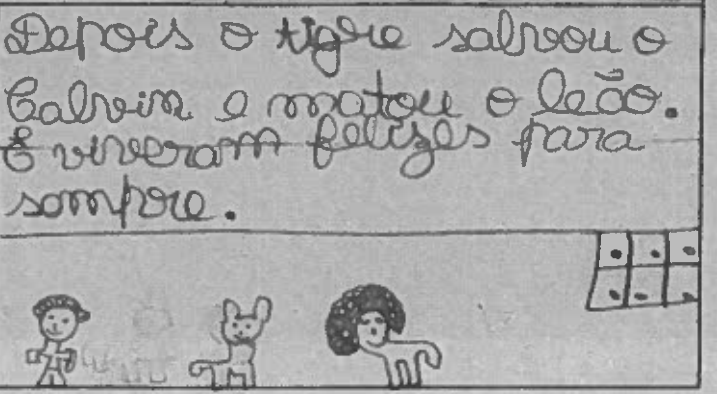 Depois o tigre salvou o
Calvin e matou o leão.
E viveram felizes para
sempre.